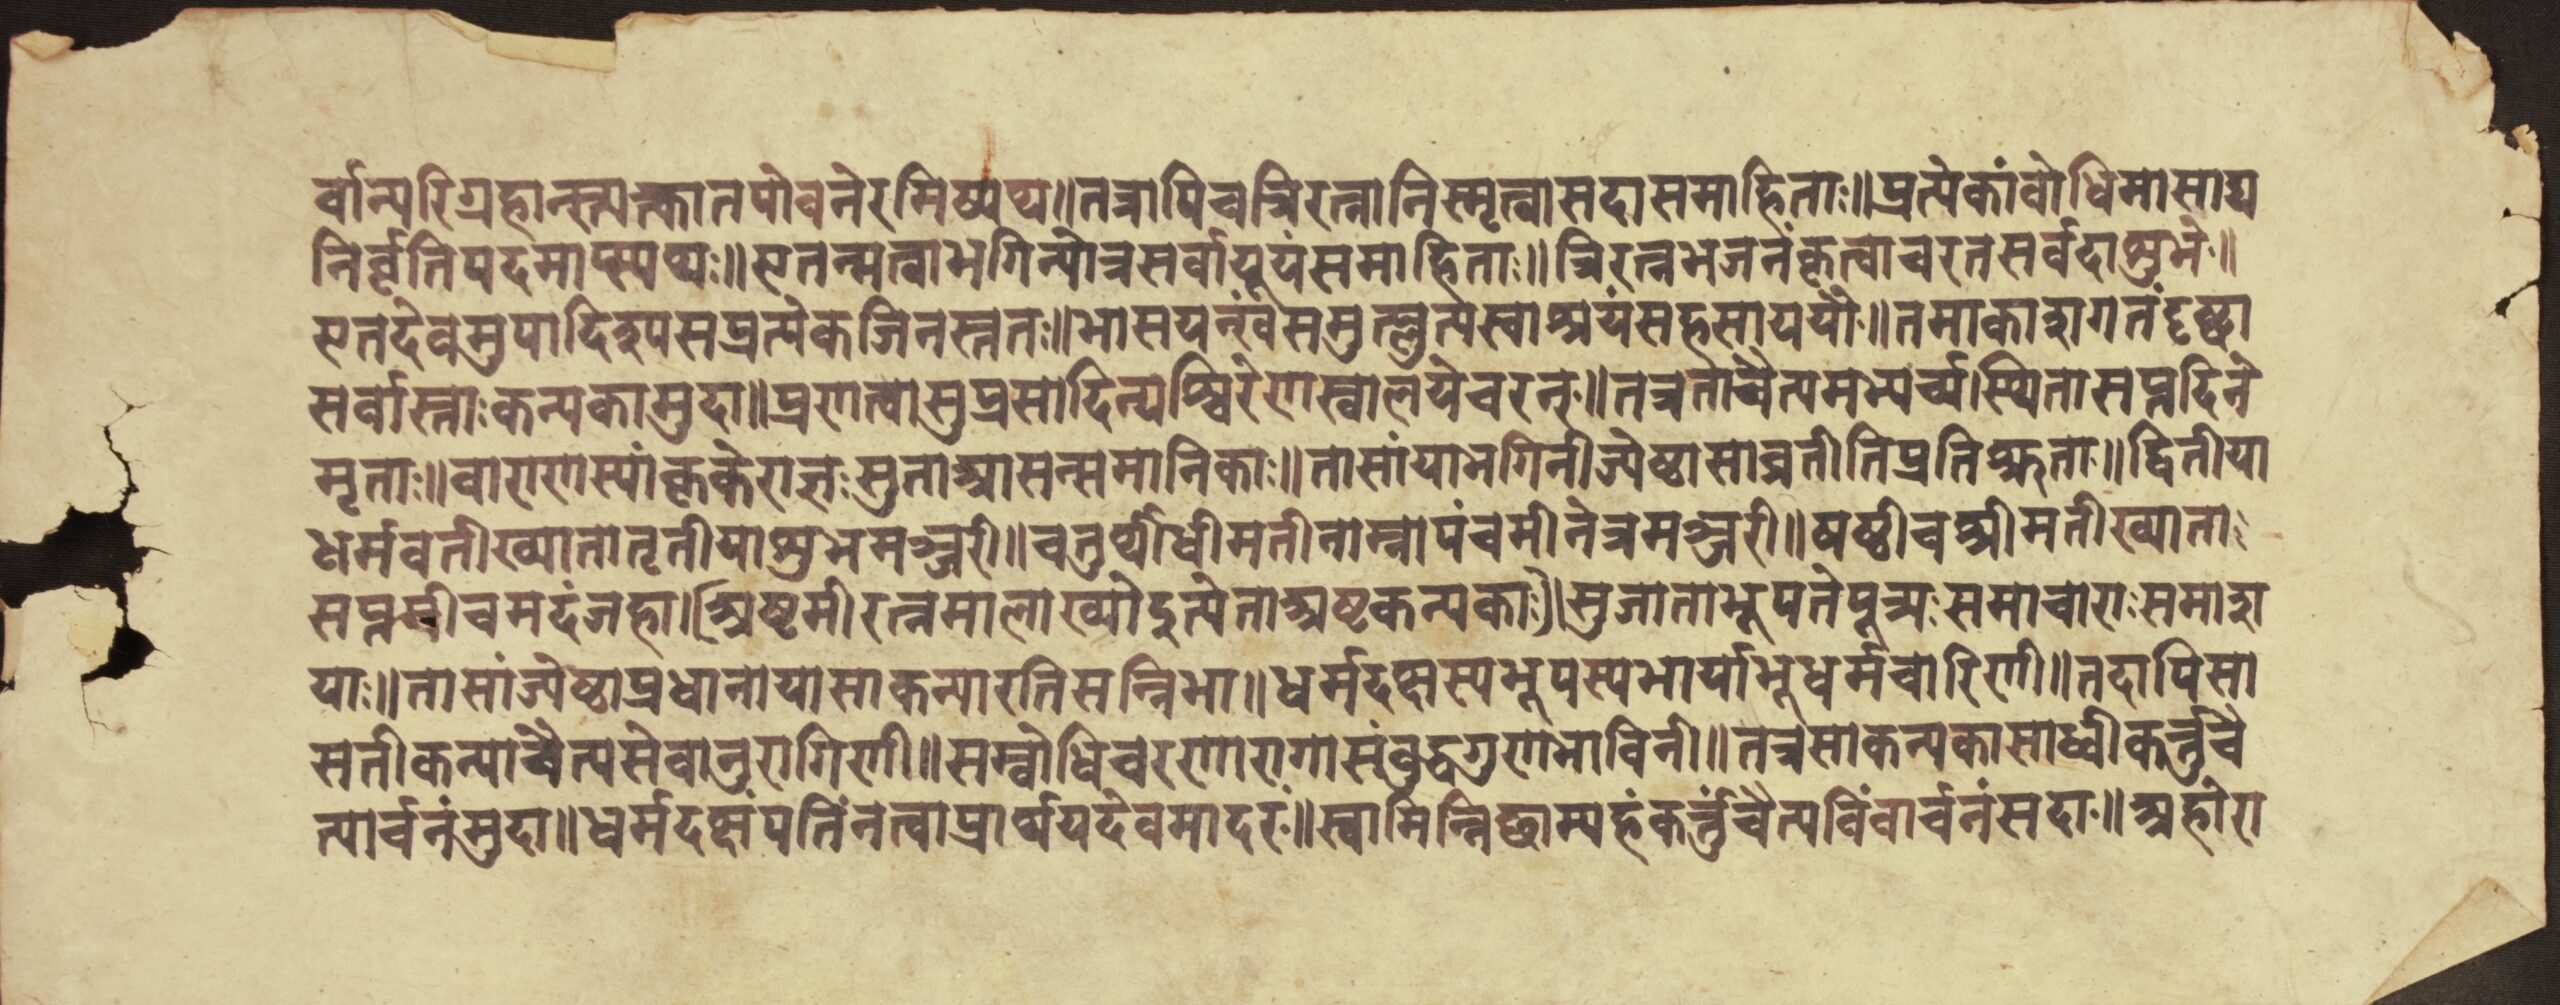 र्वान्परिग्रहान्स्त्यक्त्वातपोवनेरमिष्यथ॥तत्रापिचत्रिरत्नानिस्मृत्वासदासमाहिताः॥प्रत्येकांवोधिमासाद्य
निर्वृतिपदमाप्स्यथः॥एतन्मत्वाभगिन्योत्रसर्वायूयंसमाहिताः॥त्रिरत्नभजनंकृत्वाचरतसर्वदाशुभे॥
एतदेवमुपादिश्यसप्रत्येकजिनस्ततः॥भासयन्खंसमुत्प्लुत्यस्वाश्रयंसहसाययौ॥तमाकाशगतंदृष्ट्वा
सर्वास्ताःकन्यकामुदा॥प्रणत्वासुप्रसादिन्यश्चिरेणस्वालयेचरन्॥तत्रताचैत्यमभ्यर्च्यस्थितासप्तदिने
मृताः॥वाराणस्यांकृकेराज्ञःसुताआसन्समानिकाः॥तासांयाभगिनीज्येष्ठासाव्रतीतिप्रतिश्रुता॥द्वितीया
धर्मवतीख्यातातृतीयाशुभमञ्जरी॥चतुर्थीधीमतीनाम्नापंचमीनेत्रमञ्जरी॥षष्ठीचश्रीमतीख्याता
सप्तमीचमदंजहा।(अष्टमीरत्नमालाख्यादुत्येताअष्टकन्यकाः)॥सुजाताभूपतेपूत्र्यःसमाचाराःसमाश
याः॥तासांज्येष्ठाप्रधानायासाकन्यारतिसन्निभा॥धर्मदक्षस्यभूपस्यभार्याभूधर्मचारिणी॥तदापिसा
सतीकन्याचैत्यसेवानुरागिणी॥सम्बोधिचरणारागासंवुद्धगुणभाविनी॥तत्रसाकन्यकासाध्वीकर्त्तुचै
त्यार्चनंमुदा॥धर्मदक्षंपतिंनत्वाप्रार्थयदेवमादरं॥स्वामिन्निछाम्यहंकर्त्तुंचैत्यविंवार्चनंसदा॥अहोरा